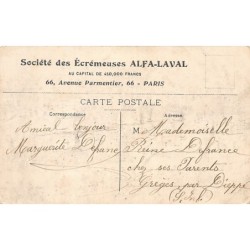 Société des Écrémeuses ALFA-LAVAL
AU CAPITAL DE 420.000 FRANCS
66, Avenue Parmentier, 66 - PARIS
CARTE POSTALE
CORRESPONDANCE
ADRESSE
Amical bonjour
Marguerite Defrance
M Mademoiselle
Reine Defrance
chez ses Parents
Grèges par Dieppe